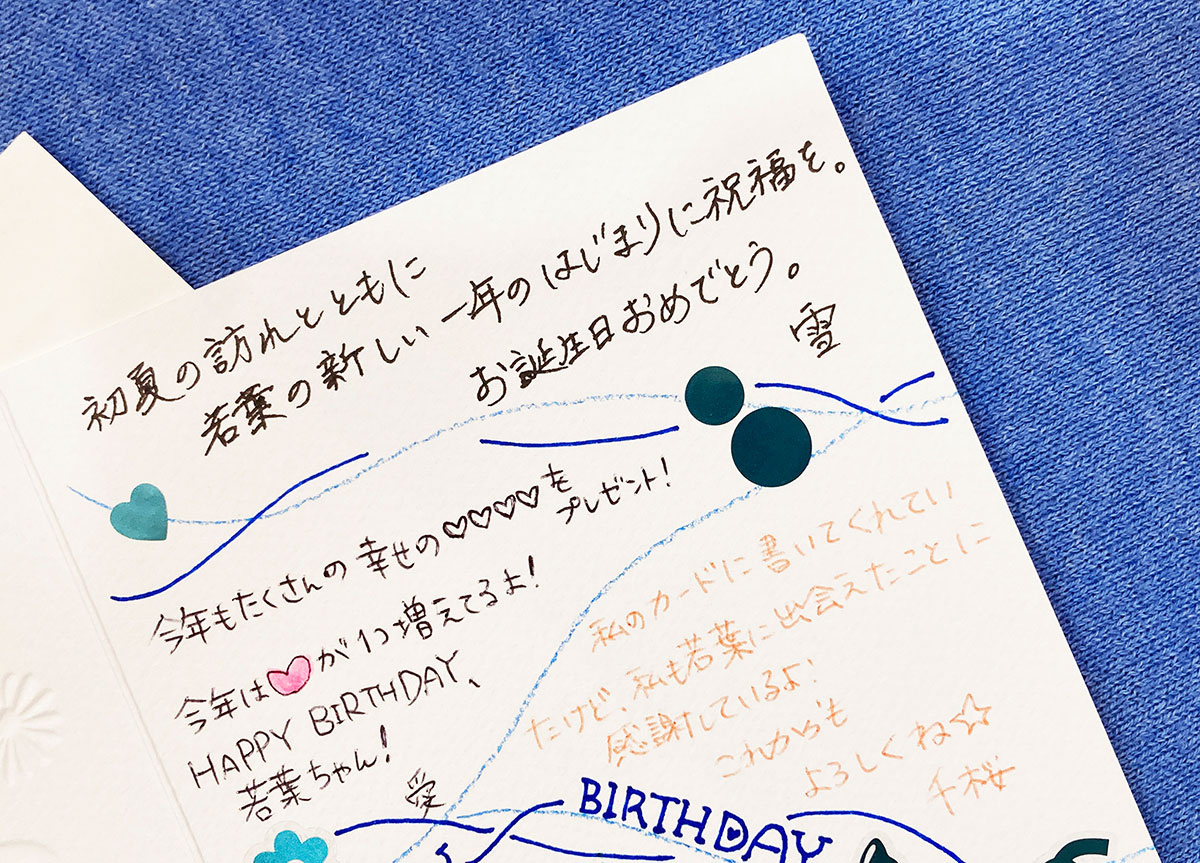 初夏の訪れとともに
若葉の新しい一年のはじまりに祝福を。
お誕生日おめでとう。
雪
今年もたくさんの幸せの♡♡♡♡を
プレゼント!
今年は♡が1つ増えてるよ!
HAPPY BIRTHDAY、
若葉ちゃん!
愛
私のカードに書いてくれてい
たけど、私も若葉に出会えたことに
感謝しているよ!
これからも
よろしくね☆
千桜
BIRTHDAY